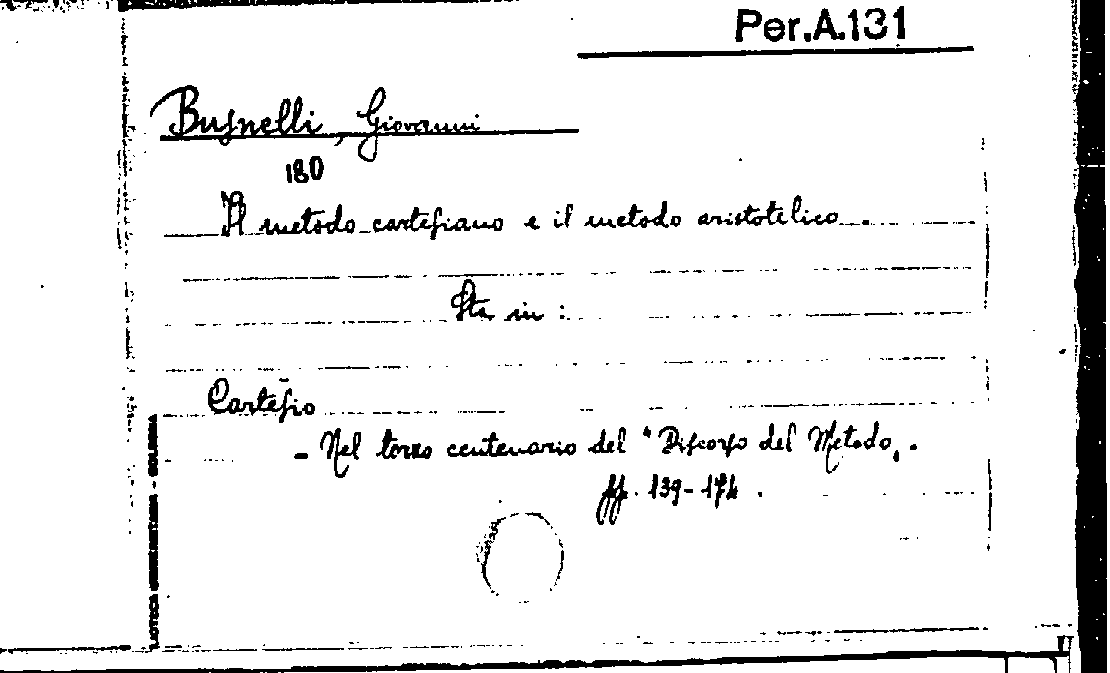 Per.A.131
Busnelli, Giovanni
180
Il metodo cartesiano e il metodo aristotelico.
Sta in:
Cartesio
- Nel terzo centenario del "Discorso del Metodo".
pp. 139-174.
BIBLIOTECA UNIVERSITARIA - BOLOGNA